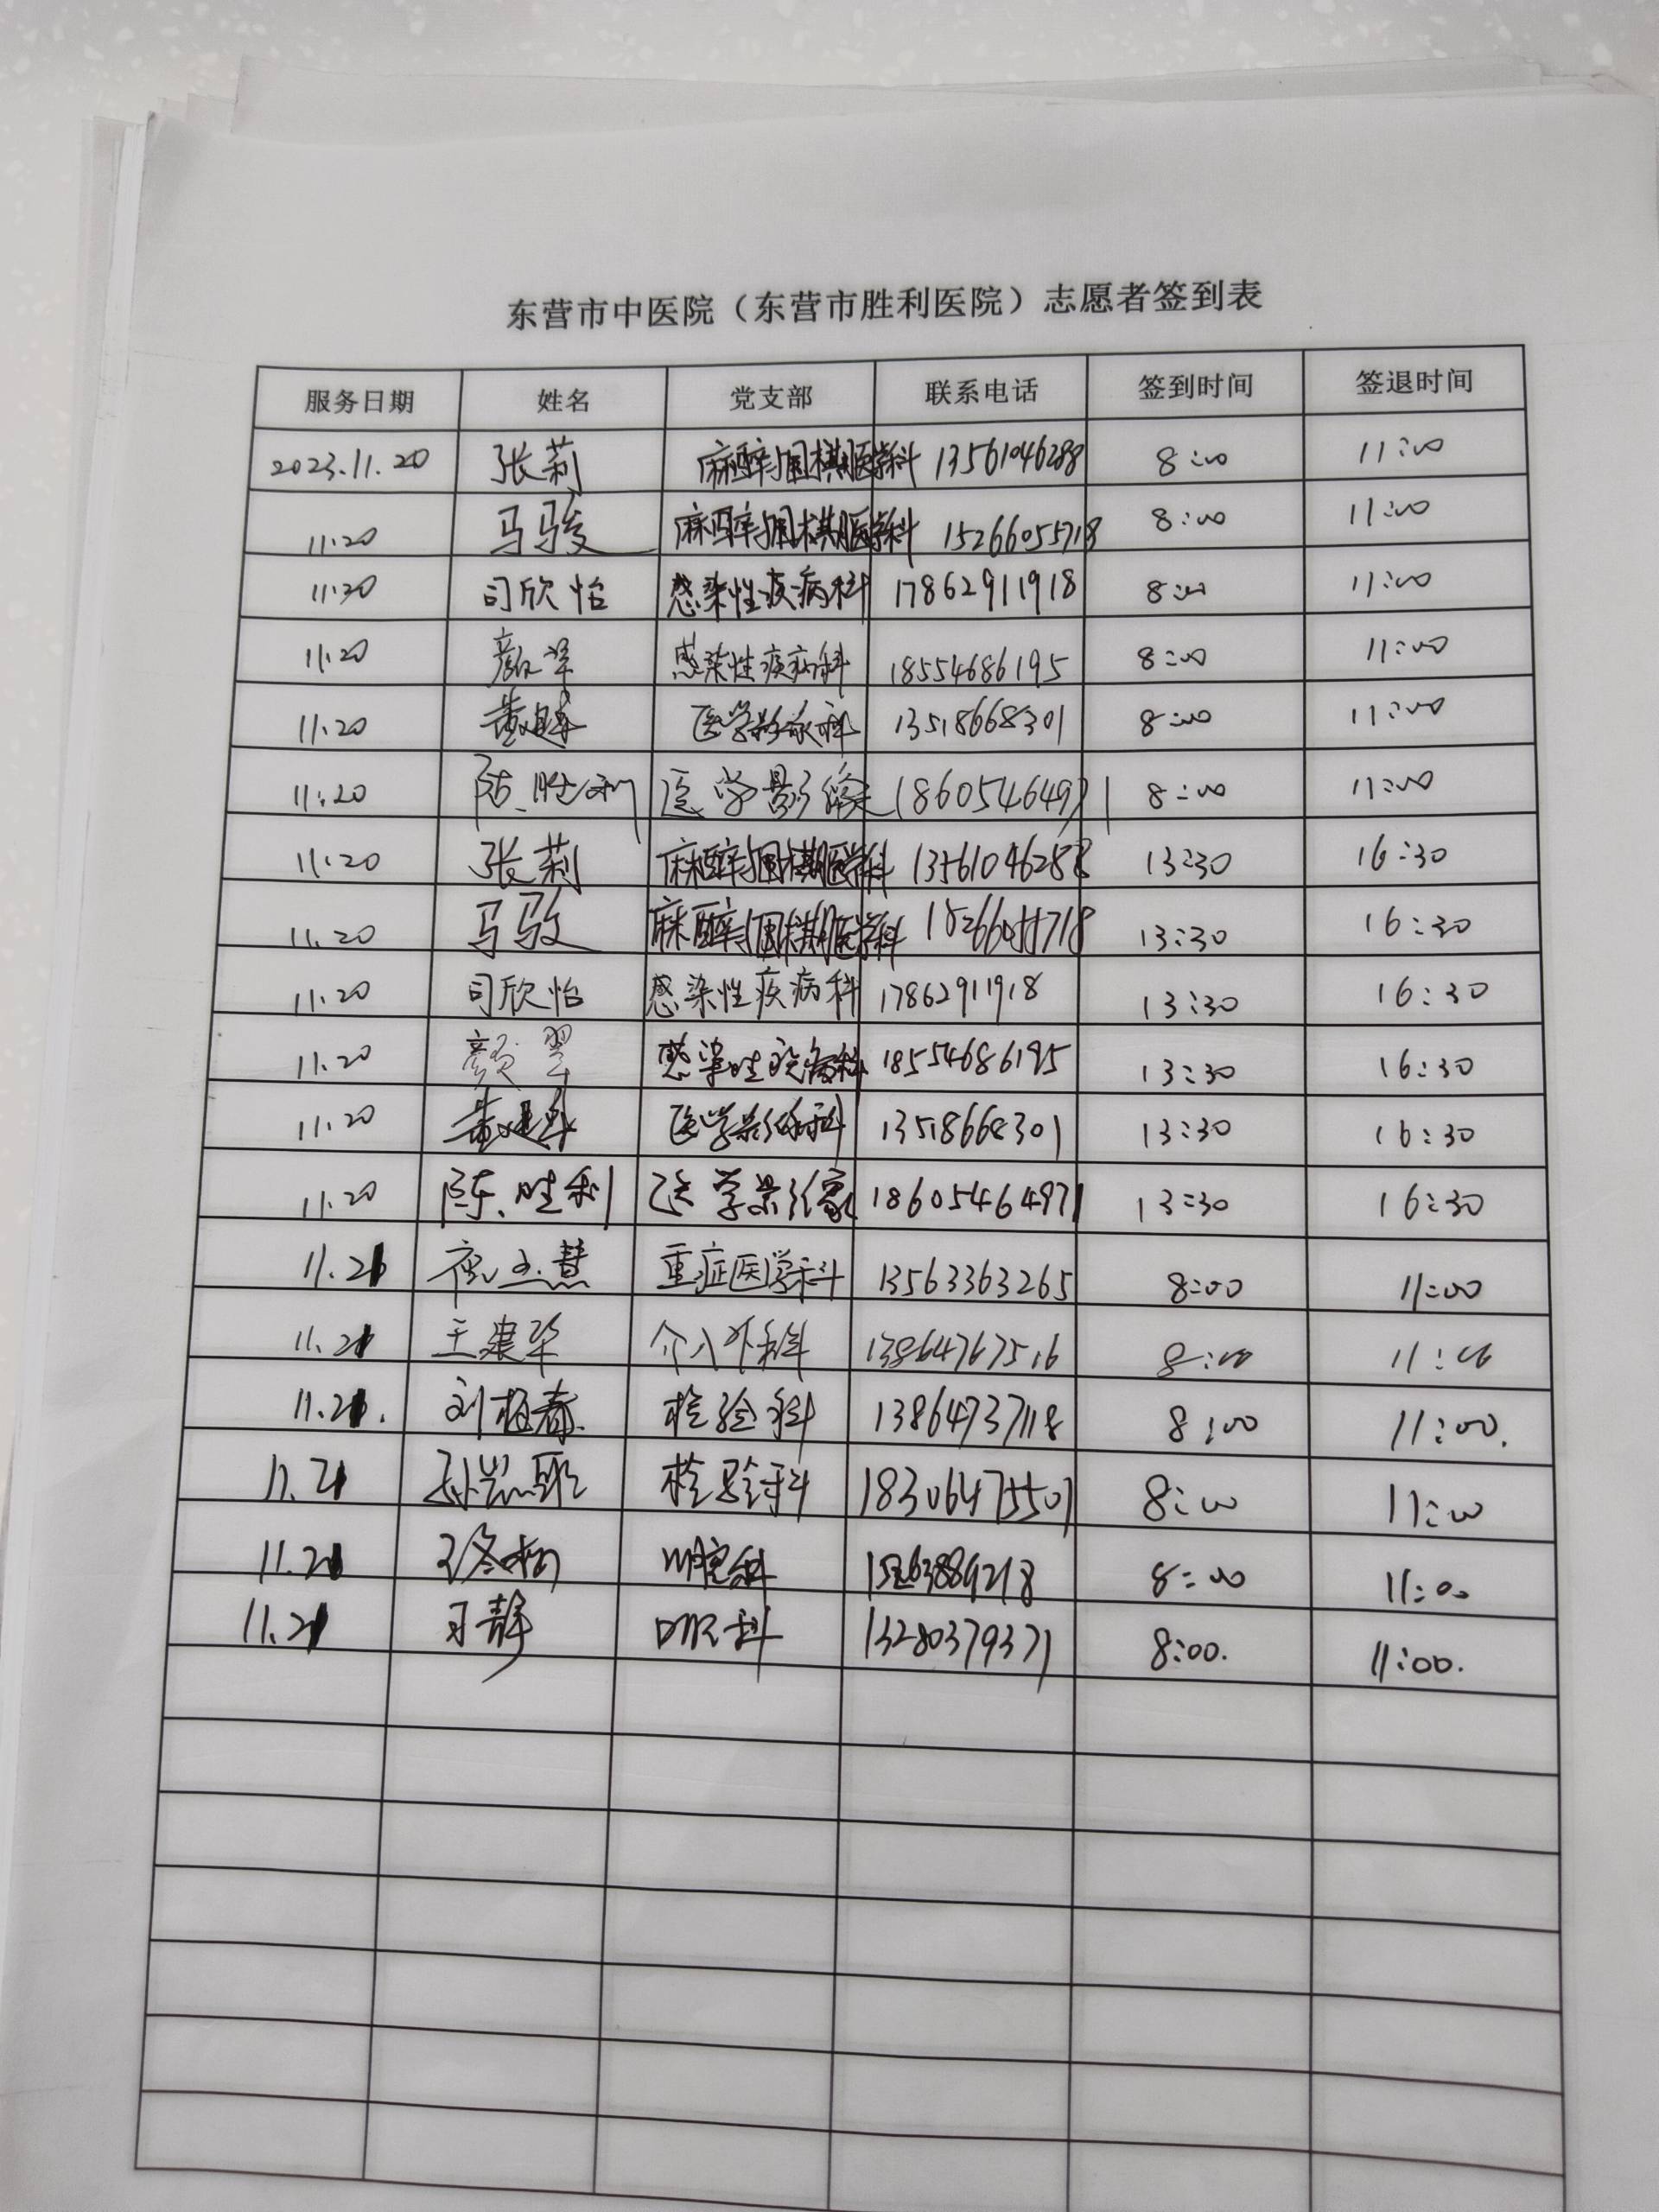 东营市中医院（东营市胜利医院）志愿者签到表
服务日期 姓名 党支部 联系电话 签到时间 签退时间
2023.11.20 张莉 麻醉与围术期医学科 13561046288 8:00 11:00
11.20 马骏 麻醉与围术期医学科 15266055718 8:00 11:00
11.20 司欣怡 感染性疾病科 17862911918 8:00 11:00
11.20 颜翠 感染性疾病科 18554686195 8:00 11:00
11.20 医学影像科 13518668301 8:00 11:00
11.20 陈胜利 医学影像 18605464971 8:00 11:00
11.20 张莉 麻醉与围术期医学科 13561046288 13:30 16:30
11.20 马骏 麻醉与围术期医学科 15266055718 13:30 16:30
11.20 司欣怡 感染性疾病科 17862911918 13:30 16:30
11.20 颜翠 感染性疾病科 18554686195 13:30 16:30
11.20 医学影像科 13518668301 13:30 16:30
11.20 陈胜利 医学影像 18605464971 13:30 16:30
11.21 重症医学科 13563363265 8:00 11:00
11.21 王建华 介入外科 13864767516 8:00 11:00
11.21. 检验科 13864737118 8:00 11:00.
11.21 检验科 18306475501 8:00 11:00
11.21 8:00 11:00
11.21 13280379371 8:00. 11:00.